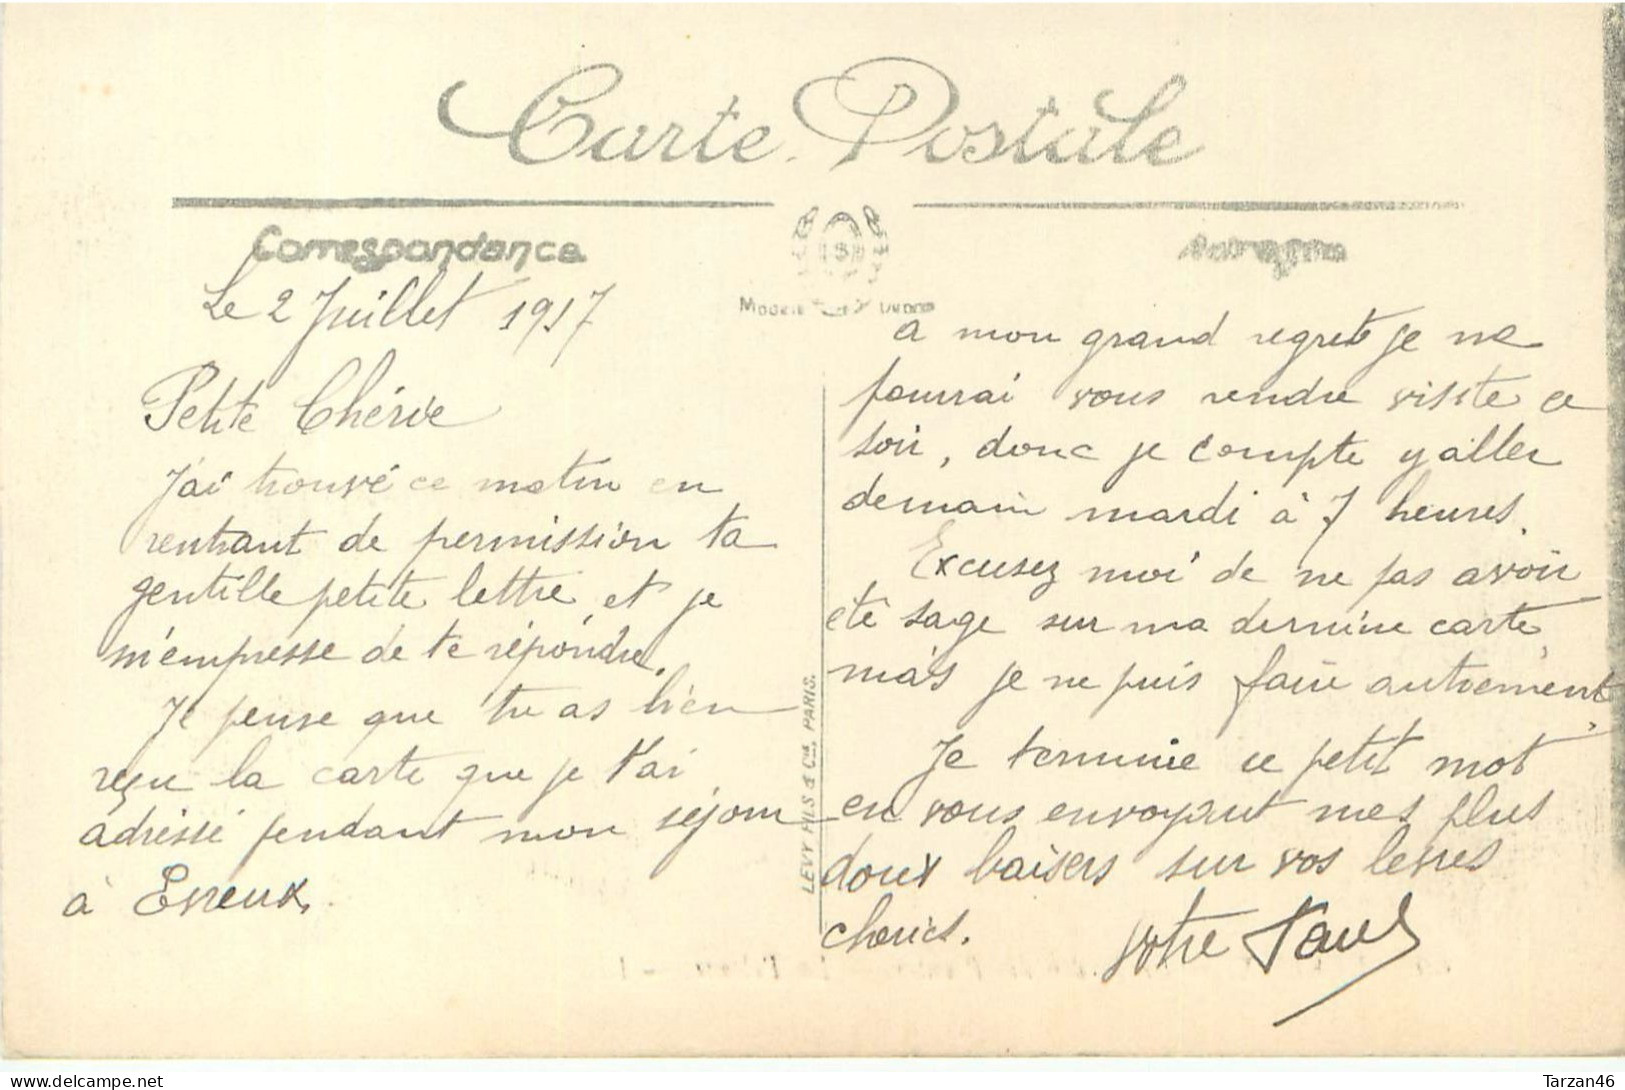 Carte Postale
Correspondance
Le 2 Juillet 1917
Petite Chérie
J'ai trouvé ce matin en
rentrant de permission ta
gentille petite lettre et je
m'empresse de te répondre.
Je pense que tu as bien
reçu la carte que je t'ai
adressé pendant mon séjour
à Evreux.
LEVY FILS & Cie, PARIS.
a mon grand regret je ne
pourrai vous rendre visite ce
soir, donc je compte y aller
demain mardi à 7 heures.
Excusez moi de ne pas avoir
été sage sur ma dernière carte,
mais je ne puis faire autrement.
Je termine ce petit mot
en vous envoyant mes plus
doux baisers sur vos levres
cheries.
Votre Paul
Tarzan46